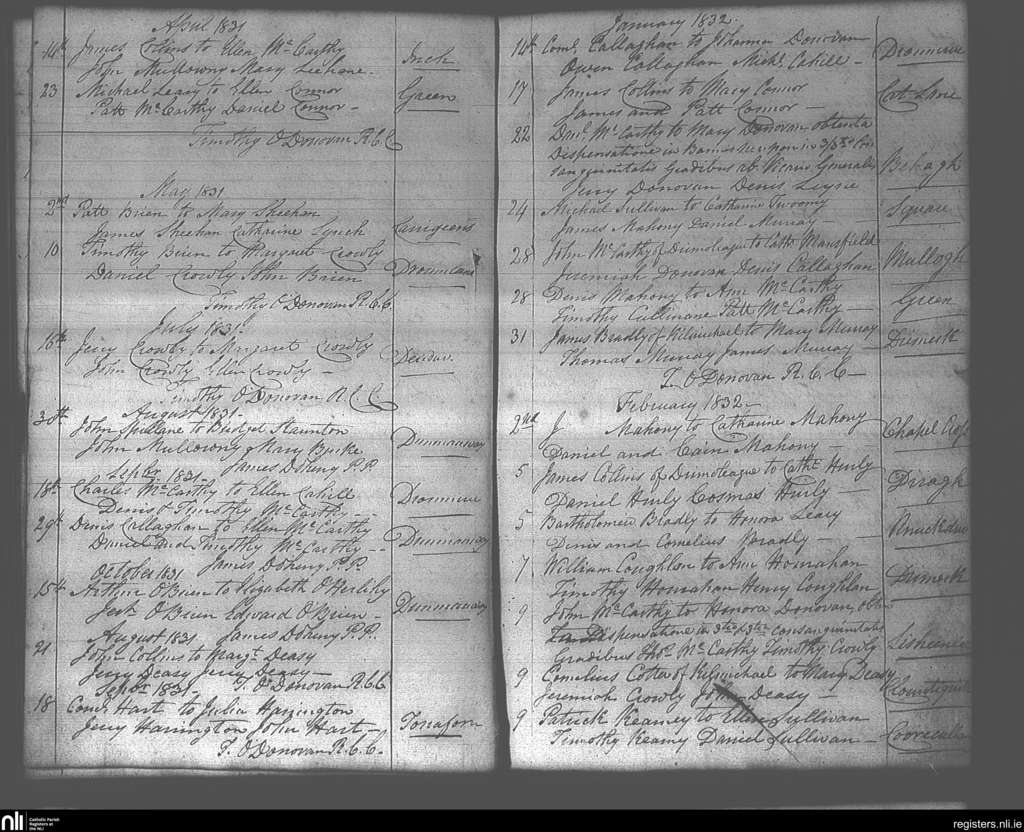 April 1831
14th James Collins to Ellen McCarthy
John Mullowny Mary Leehane - Inch
23 Michael Leary to Ellen Connor Green
Patt McCarthy Daniel Connor -
Timothy O'Donovan R.C.C
May 1831
2nd Patt Brien to Mary Sheehan
James Sheehan Catharine Lynch
10 Timothy Brien to Margaret Crowly
Daniel Crowly John Brien
Timothy O'Donovan R.C.C.
July 1831.
16th Jerry Crowly to Margaret Crowly
John Crowly Ellen Crowly -
Timothy O'Donovan R.C.C.
August 1831.
30th John Spillane to Bridget Staunton
John Mullowny & Mary Dunmanway
James Doheny P.P.
Septbr 1831.
18th Charles McCarthy to Ellen Cahill
Denis & Timothy McCarthy - -
29th Denis Callaghan to Ellen McCarthy
Daniel and Timothy McCarthy - - Dunmanway
James Doheny P.P.
October 1831
15th Arthur O'Brien to Elizabeth O'Herlihy
O'Brien Edward O'Brien Dunmanway
James Doheny P.P.
August 1831.
21 John Collins to Margt. Deasy
Jerry Deasy Jerry Deasy -
T. O'Donovan R.C.C
Septbr 1831.
18 Corns. Hart to Julia Harrington
Jerry Harrington John Hart - Tonafora
T. O'Donovan R.C.C.
January 1832.
14th Corns. Callaghan to Johanna Donovan
Owen Callaghan Michl. Cahill -
17 James Collins to Mary Connor Cat Lane
James and Patt Connor -
22 Danl. McCarthy to Mary Donovan obtenta
Dispensatione in Bannis
Consanguinitatis Gradibus ab Vicario Generali Behagh
Jerry Donovan Denis
24 Michael Sullivan to Catharine Square
James Mahony Daniel Murray -
28 John McCarthy of Dumoleague to Cath. Mansfield Mullogh
Jeremiah Donovan Denis Callaghan
28 Denis Mahony to Ann McCarthy Green
Timothy Cullinane Patt McCarthy -
31 James Bradly of Kilmichael to Mary Murray
Thomas Murray James Murray -
T. O'Donovan R.C.C -
February 1832 -
2nd J Mahony to Catharine Mahony
Daniel and Cain Mahony - Chapel
5 James Collins of Dumoleague to Cathe. Hurly
Daniel Hurly Cosmas Hurly -
5 Bartholomew Bradly to Honora Leary
Denis and Cornelius Bradly -
7 William Coughlan to Ann Hourahan
Timothy Hourahan Henry Coughlan
9 John McCarthy to Honora Donovan,
Dispensatione in 3tio & 3tio consanguinitatis
Gradibus Thos. McCarthy Timothy Crowly
9 Cornelius Cotter of Kilmichael to Mary Deasy
Jeremiah Crowly John Deasy -
9 Patrick Keamey to Ellen Sullivan
Timothy Keamy Daniel Sullivan -
nli Catholic Parish
Registers at
the NLI
registers.nli.ie